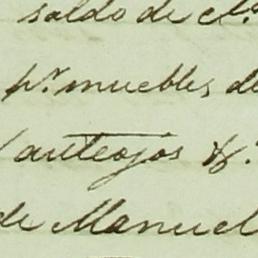 saldo de cta
pr muebles de
anteojos &.
de Manuel